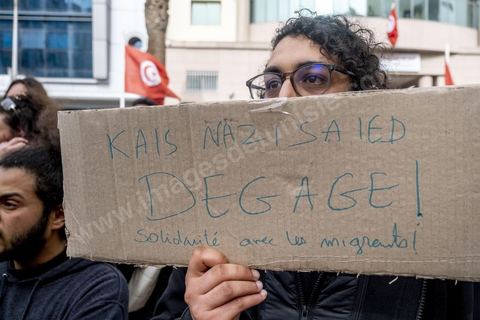 KAIS NAZI SAIED
DEGAGE!
Solidarité avec les migrants!
www.imagesdetunisie.com